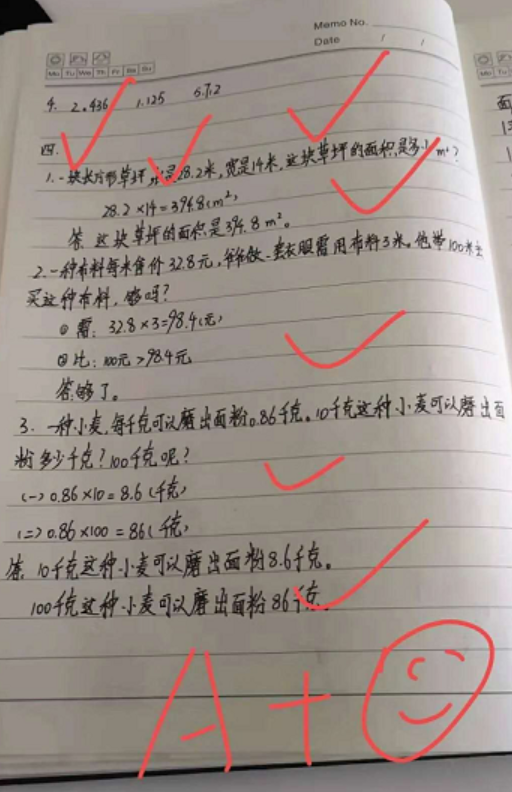 Memo No.
Date / /
Mo Tu We Th Fr Sa Su
4. 2.436 1.125 5.72
四.
1.一块长方形草坪,长是28.2米,宽是14米,这块草坪的面积是多少m²?
28.2×14=394.8(m²)
答 这块草坪的面积是394.8m²。
2.一种布料每米售价32.8元,爷爷做一套衣服需用布料3米。他带100米去
买这种布料,够吗?
①需: 32.8×3=98.4(元)
②比: 100元>98.4元
答:够了。
3. 一种小麦,每千克可以磨出面粉0.86千克。10千克这种小麦可以磨出面
粉多少千克?100千克呢?
(一) 0.86×10=8.6(千克)
(二) 0.86×100=86(千克)
答. 10千克这种小麦可以磨出面粉8.6千克。
100千克这种小麦可以磨出面粉86千克.
A+